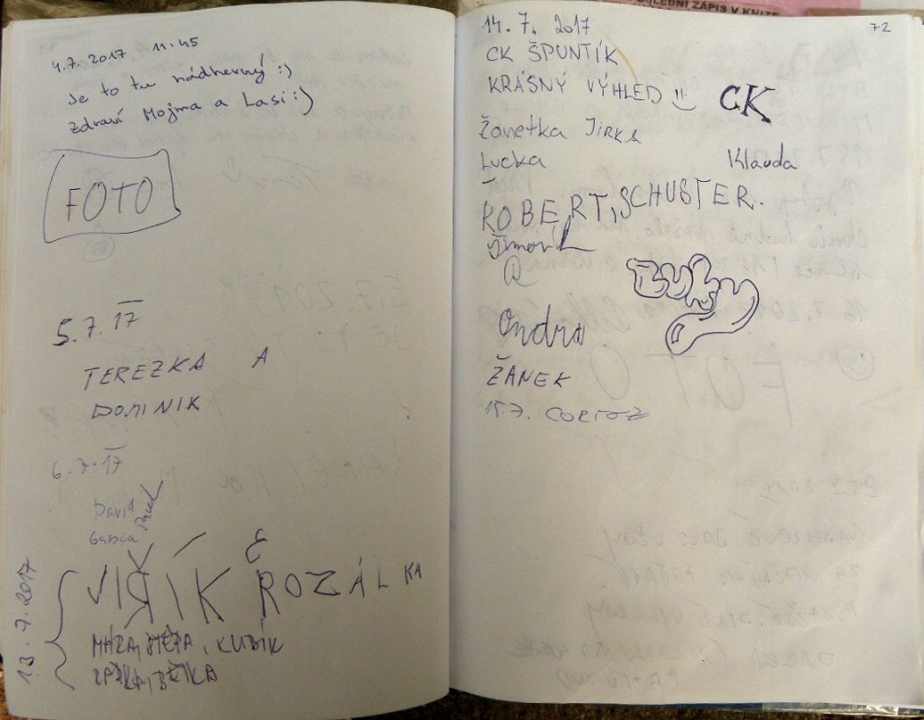 4.7.2017 11:45
Je to tu nádherný :)
Zdraví Mojma a Lasi :)
FOTO
5.7.17
TEREZKA A
DOMINIK
6.7.17
David
Gabča Pavel
13.7.2017
VIŘÍK & ROZÁLKA
KUBÍK
LEDNÍ ZÁPIS V KNIZE
72
14.7.2017
CK ŠPUNTÍK
KRÁSNÝ VÝHLED
CK
Žanetka Jirka
Lucka Klauda
ROBERT, SCHUSTER.
Ondra
ŽANEK
15.7.